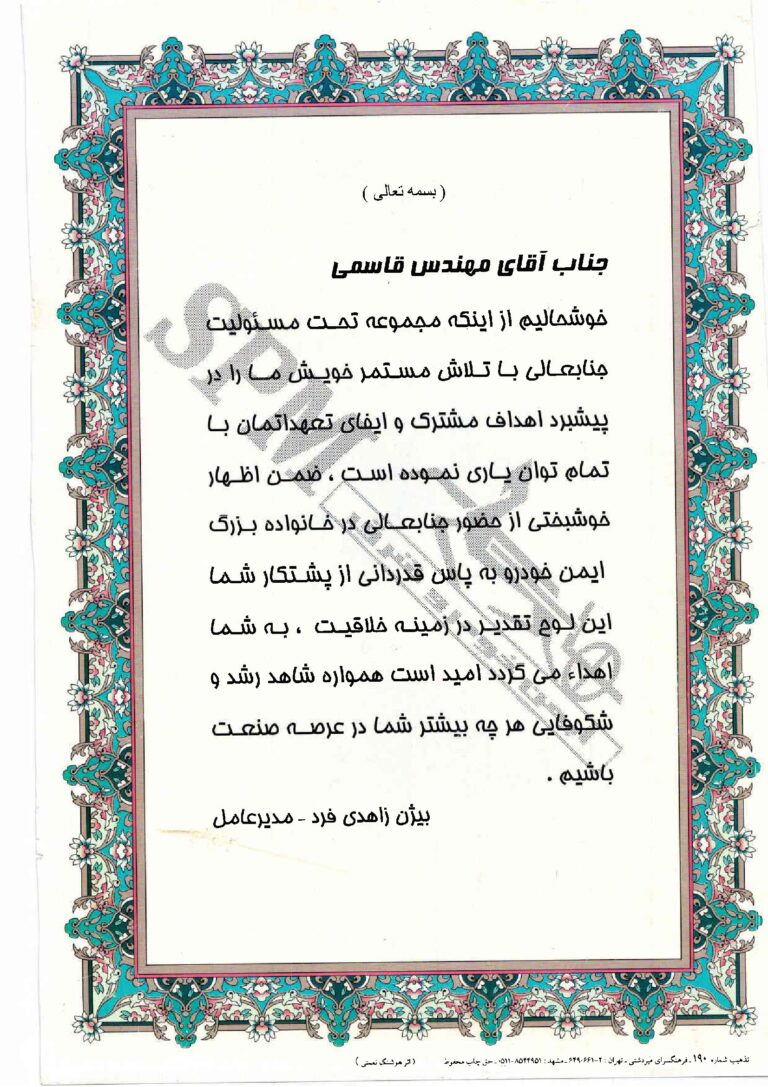 ( بسمه تعالی )
جناب آقای مهندس قاسمی
خوشحالیم از اینکه مجموعه تحت مسئولیت
جنابعالی با تلاش مستمر خویش ما را در
پیشبرد اهداف مشترک و ایفای تعهداتمان با
تمام توان یاری نموده است ، ضمن اظهار
خوشبختی از حضور جنابعالی در خانواده بزرگ
ایمن خودرو به پاس قدردانی از پشتکار شما
این لوح تقدیر در زمینه خلاقیت ، به شما
اهداء می گردد امید است همواره شاهد رشد و
شکوفایی هر چه بیشتر شما در عرصه صنعت
باشیم .
بیژن زاهدی فرد - مدیرعامل
SPM
تذهیب شماره ۱۹۰ ـ فرهنگسرای میردشتی ـ تهران : ۲-۶۴۹۰۶۶۱ ـ مشهد : ۸۵۴۴۹۵۱-۰۵۱۱ ـ حق چاپ محفوظ ( اثر هوشنگ نعمتی )